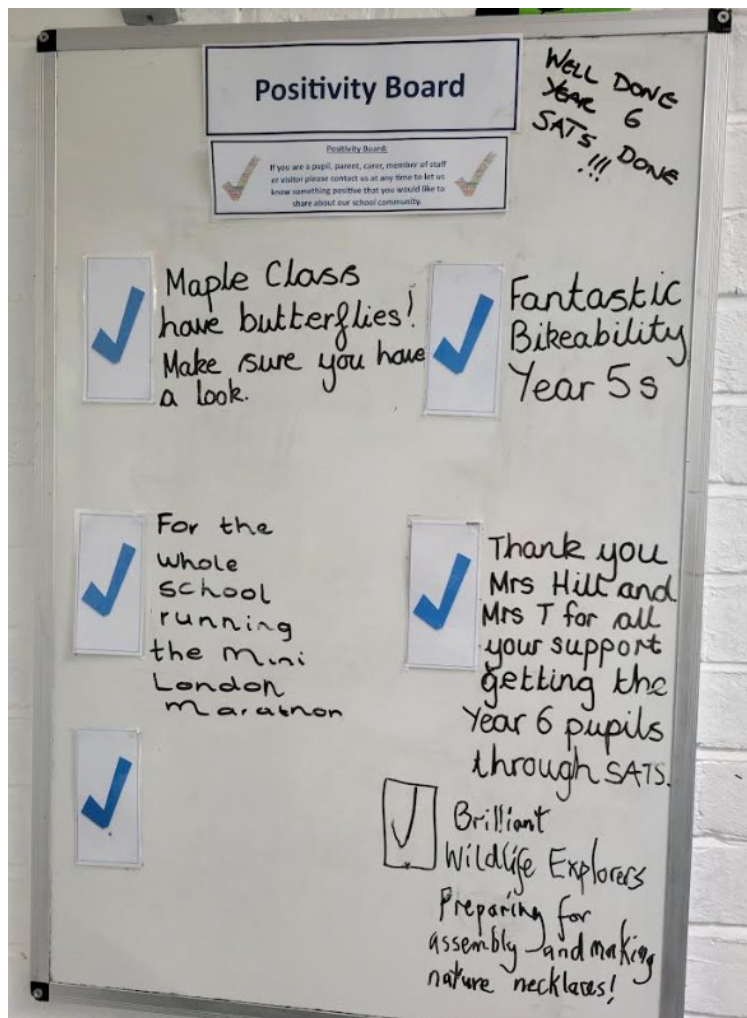 Positivity Board
WELL DONE
YEAR 6
SATs DONE
!!!
Positivity Board:
If you are a pupil, parent, carer, member of staff
or visitor please contact us at any time to let us
know something positive that you would like to
share about our school community.
Maple Class
have butterflies!
Make sure you have
a look.
Fantastic
Bikeability
Year 5s
For the
whole
school
running
the mini
London
Marathon
Thank you
Mrs Hill and
Mrs T for all
your support
getting the
Year 6 pupils
through SATS.
Brilliant
Wildlife Explorers
Preparing for
assembly and making
nature necklaces!